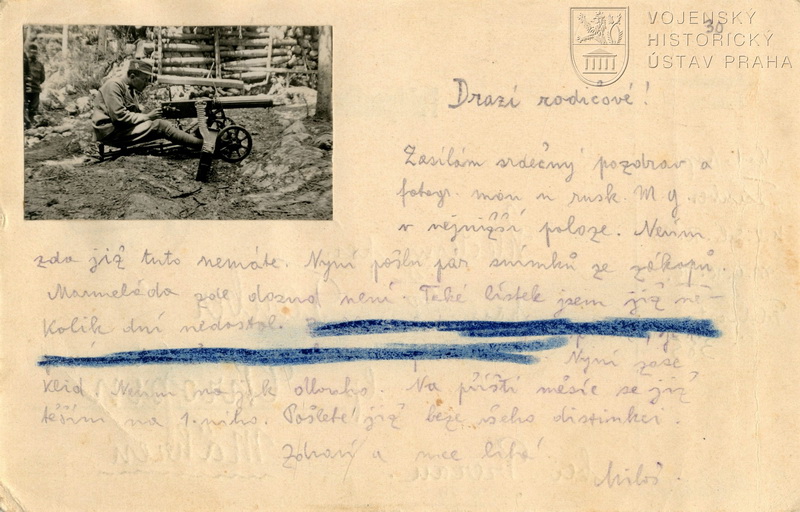 VOJENSKÝ
HISTORICKÝ
ÚSTAV PRAHA
30
Drazí rodičové!
Zasílám srdečný pozdrav a
fotogr. mou u rusk. M g.
v nejnižší poloze. Nevím
zda již tuto nemáte. Nyní pošlu pár snímků ze zákopů.
Marmeláda zde dozud není. Také lístek jsem již ně-
kolik dní nedostal.
Nyní zase
klid Nevím na jak dlouho. Na příští měsíc se již
těším na 1.ního. Pošlete již beze všeho distinkci.
Zdraví a líbá
Miloš.